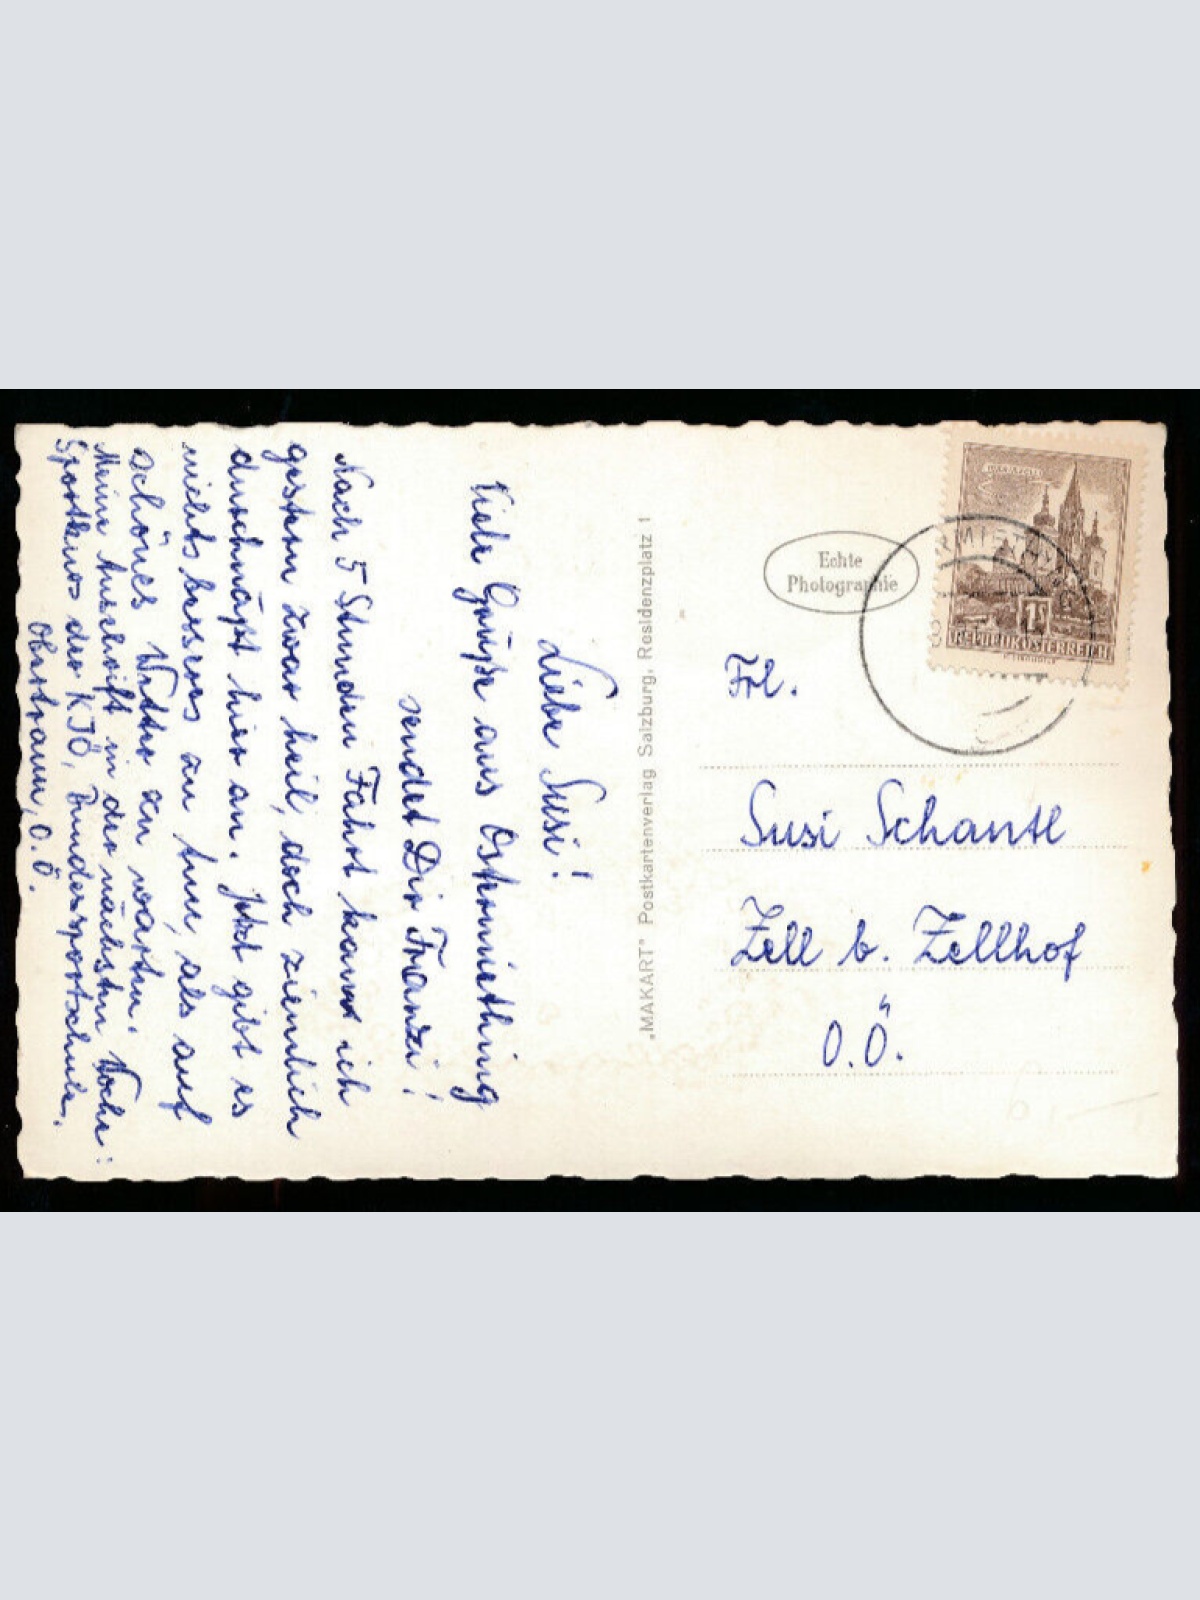 Liebe Susi!
Viele Grüße aus Ostermiething
sendet Dir Franzi!
Nach 5 Stunden Fahrt kam ich
gestern zwar heil, doch ziemlich
durchnäßt hier an. Jetzt gibt es
nichts besseres zu tun, als auf
schönes Wetter zu warten.
Meine Anschrift in der nächsten Woche:
Sportkurs der KJÖ, Bundessportschule,
Obertraun, O.Ö.
"MAKART" Postkartenverlag Salzburg, Residenzplatz 1
Echte
Photographie
MARIAZELL
1S
REPUBLIK ÖSTERREICH
Frl.
Susi Schantl
Zell b. Zellhof
O.Ö.